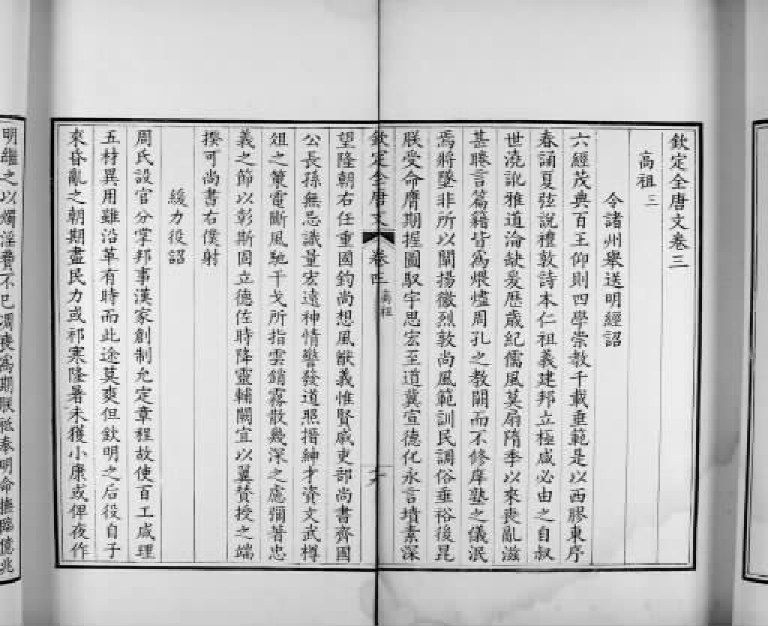 欽定全唐文卷三
高祖三
令諸州舉送明經詔
六經茂典百王仰則四學崇教千載垂範是以西膠東序
春誦夏弦說禮敦詩本仁祖義建邦立極咸必由之自叔
世澆訛雅道淪缺爰歷歲紀儒風莫扇隋季以來喪亂滋
甚睠言篇籍皆為煨燼周孔之教闕而不修庠塾之儀泯
焉將墜非所以闡揚徽烈敦尚風範訓民調俗垂裕後昆
朕受命膺期握圖馭宇思宏至道冀宣德化永言墳素深
欽定全唐文 卷三 高祖
望隆朝右任重國鈞尚想風猷義惟賢戚吏部尚書齊國
公長孫無忌識量宏遠神情警發道照搢紳才資文武樽
俎之策電斷風馳干戈所指雲銷霧散幾深之慮彌著忠
義之節以彰斯固立德佐時降靈輔闕宜以翼贊授之端
揆可尚書右僕射
緩力役詔
周氏設官分掌邦事漢家創制允定章程故使百工咸理
五材異用雖沿革有時而此途莫爽但欽明之后役自子
來昏亂之朝期盡民力或祁寒隆暑未獲小康或俾夜作
明繼之以燭淫費不已凋喪為期朕祗奉明命撫臨億兆